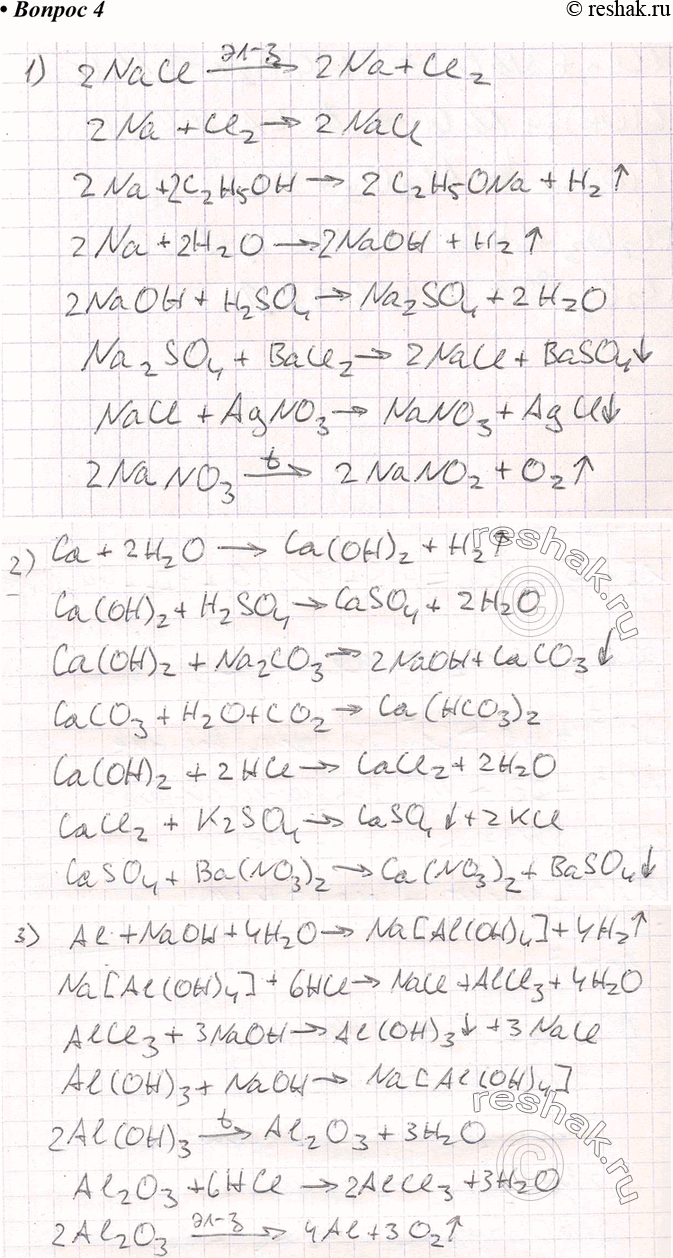 • Вопрос 4
© reshak.ru
1) 2NaCl эл-з→ 2Na + Cl₂
2Na + Cl₂ → 2NaCl
2Na + 2C₂H₅OH → 2C₂H₅ONa + H₂↑
2Na + 2H₂O → 2NaOH + H₂↑
2NaOH + H₂SO₄ → Na₂SO₄ + 2H₂O
Na₂SO₄ + BaCl₂ → 2NaCl + BaSO₄↓
NaCl + AgNO₃ → NaNO₃ + AgCl↓
2NaNO₃ t→ 2NaNO₂ + O₂↑
2) Ca + 2H₂O → Ca(OH)₂ + H₂↑
Ca(OH)₂ + H₂SO₄ → CaSO₄ + 2H₂O
Ca(OH)₂ + Na₂CO₃ → 2NaOH + CaCO₃↓
CaCO₃ + H₂O + CO₂ → Ca(HCO₃)₂
Ca(OH)₂ + 2HCl → CaCl₂ + 2H₂O
CaCl₂ + K₂SO₄ → CaSO₄↓ + 2KCl
CaSO₄ + Ba(NO₃)₂ → Ca(NO₃)₂ + BaSO₄↓
reshak.ru
©
3) Al + NaOH + 4H₂O → Na[Al(OH)₄] + 4H₂↑
Na[Al(OH)₄] + 6HCl → NaCl + AlCl₃ + 4H₂O
AlCl₃ + 3NaOH → Al(OH)₃↓ + 3NaCl
Al(OH)₃ + NaOH → Na[Al(OH)₄]
2Al(OH)₃ t→ Al₂O₃ + 3H₂O
Al₂O₃ + 6HCl → 2AlCl₃ + 3H₂O
2Al₂O₃ эл-з→ 4Al + 3O₂↑
reshak.ru
©